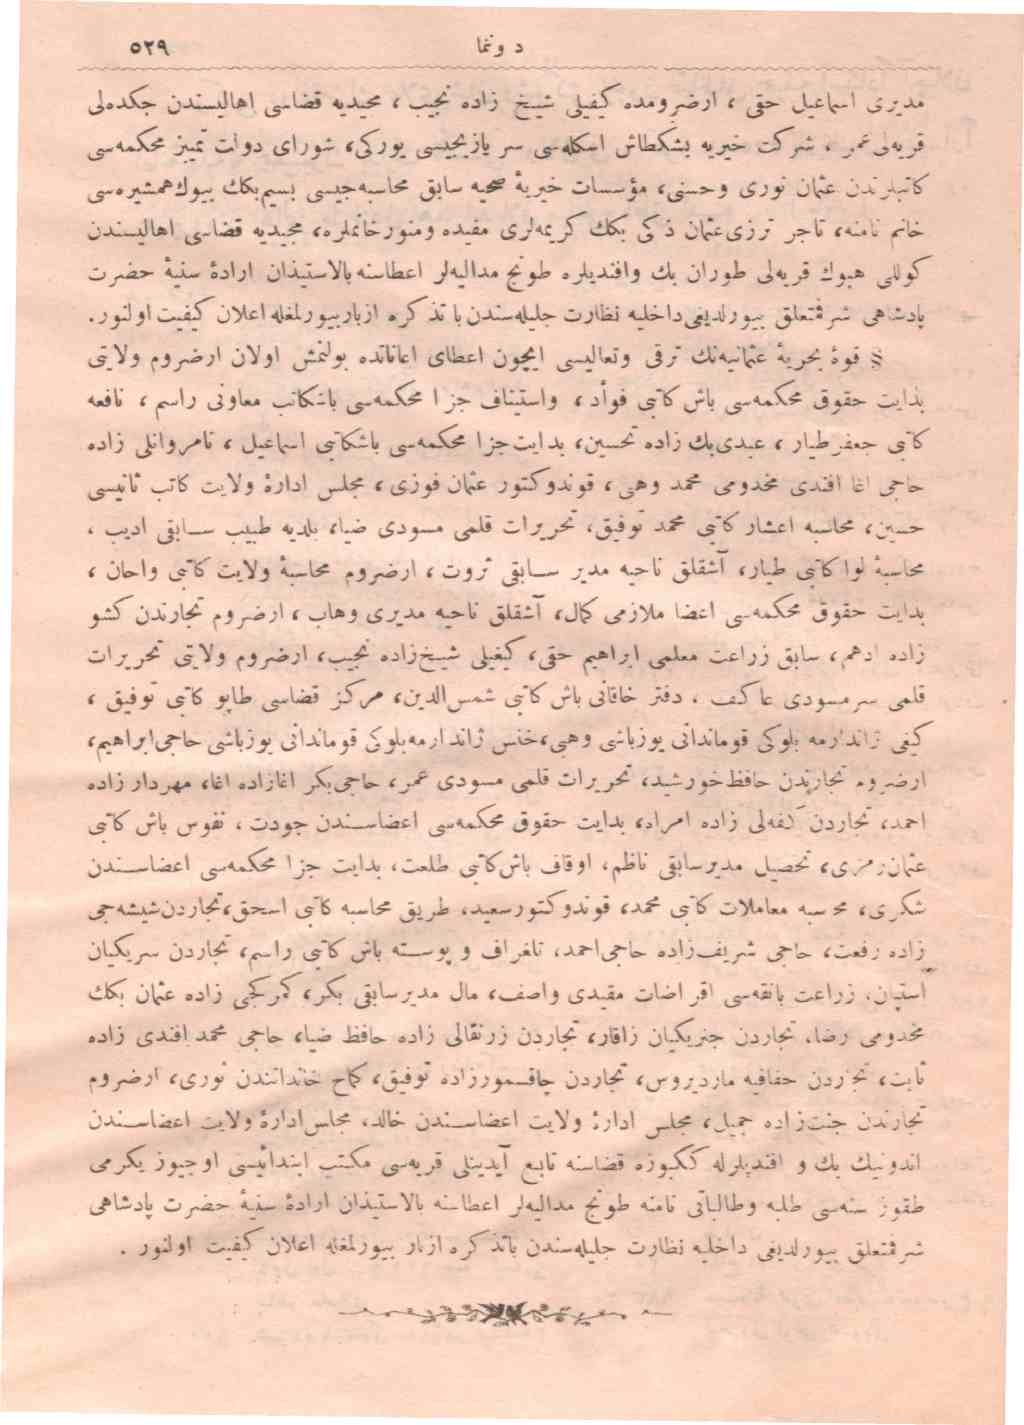 دونما ٥٢٩
مدیری اسماعیل حقی ، ارضرومده کیفیلی شیخ زاده نجیب ، مجیدیه قضاسی اهالیسندن جکده‌لی
قریه‌لی عمر ، شرکت خیریه بشکطاش اسکله‌سی سر یازیجیسی یورکی، شورای دولت تمییز محکمه‌سی
کاتبلرندن عثمان نوری وحسنی، مؤسسات خیریهٔ صحیه سابق محاسبه‌جیسی بسیم‌بکك بیوك همشیره‌سی
خانم نامنه، تاجر ترزی عثمان ذکی بکك کریمه‌لری مفیده ومنور خانملره، مجیدیه قضاسی اهالیسندن
کوللی هیوك قریه‌لی طوران بك وافندیلره طونج مدالیه‌لر اعطاسنه بالاستیذان ارادهٔ سنیهٔ حضرت
پادشاهی شرفتعلق بیورلدیغی داخلیه نظارت جلیله‌سندن با تذکره ازبار بیورلمغله اعلان کیفیت اولنور.
§ قوهٔ بحریهٔ عثمانیه‌نك ترقی وتعالیسی ایچون اعطای اعاناتده بولنمش اولان ارضروم ولایتی
بدایت حقوق محکمه‌سی باش کاتبی فوأد ، واستیناف جزا محکمه‌سی باشکاتب معاونی راسم ، نافعه
کاتبی جعفر طیار ، عبدی‌بك زاده تحسین، بدایت جزا محکمه‌سی باشکاتبی اسماعیل ، نامروانلی زاده
حاجی اغا افندی مخدومی محمد وهبی ، قوندوکتور عثمان فوزی ، مجلس ادارهٔ ولایت کاتب ثانیسی
حسین، محاسبه اعشار کاتبی محمد توفیق، تحریرات قلمی مسودی ضیا، بلدیه طبیب سابقی ادیب ،
محاسبهٔ لوا کاتبی طیار، آشقلق ناحیه مدیر سابقی ثروت ، ارضروم محاسبهٔ ولایت کاتبی واحان ،
بدایت حقوق محکمه‌سی اعضا ملازمی کمال، آشقلق ناحیه مدیری وهاب ، ارضروم تجارندن کشو
زاده ادهم، سابق زراعت معلمی ابراهیم حقی، کیغیلی شیخ‌زاده نجیب، ارضروم ولایتی تحریرات
قلمی سرمسودی عاکف . دفتر خاقانی باش کاتبی شمس‌الدین، مرکز قضاسی طاپو کاتبی توفیق ،
کیفی ژاندارمه بلوکی قوماندانی یوزباشی وهبی، خنس ژاندارمه بلوکی قوماندانی یوزباشی حاجی ابراهیم،
ارضروم تجارندن حافظ خورشید، تحریرات قلمی مسودی عمر، حاجی‌بکر اغازاده اغا، مهردار زاده
احمد، تجاردن کفه‌لی زاده امراد، بدایت حقوق محکمه‌سی اعضاسندن جودت ، نفوس باش کاتبی
عثمان رمزی، تحصیل مدیر سابقی ناظم، اوقاف باش کاتبی طلعت، بدایت جزا محکمه‌سی اعضاسندن
شکری، محاسبه معاملات کاتبی محمد، قوندوکتور سعید، طریق محاسبه کاتبی اسحق، تجاردن شیشه‌جی
زاده رفعت، حاجی شریف‌زاده حاجی احمد، تلغراف و پوسته باش کاتبی راسم، تجاردن سریکیان
استپان، زراعت بانقه‌سی اقراضات مقیدی واصف، مال مدیر سابقی بکر، کمرکجی زاده عثمان بکك
مخدومی رضا، تجاردن جنریکیان زاقار، تجاردن زرنقالی زاده حافظ ضیا، حاجی محمد افندی زاده
ثابت، تجاردن حفافیه ماردیروس، تجاردن چاقمورزاده توفیق، کماح خاندانندن نوری، ارضروم
تجارندن جنت‌زاده جمیل، مجلس ادارهٔ ولایت اعضاسندن خالد، مجلس ادارهٔ ولایت اعضاسندن
اندونیك بك و افندیلرله ککبوزه قضاسنه تابع آیدینلی قریه‌سی مکتب ابتدائیسی اوچیوز یکرمی
طقوز سنه‌سی طلبه وطالباتی نامنه طونج مدالیه‌لر اعطاسنه بالاستیذان ارادهٔ سنیهٔ حضرت پادشاهی
شرفتعلق بیورلدیغی داخلیه نظارت جلیله‌سندن باتذکره ازبار بیورلمغله اعلان کیفیت اولنور .